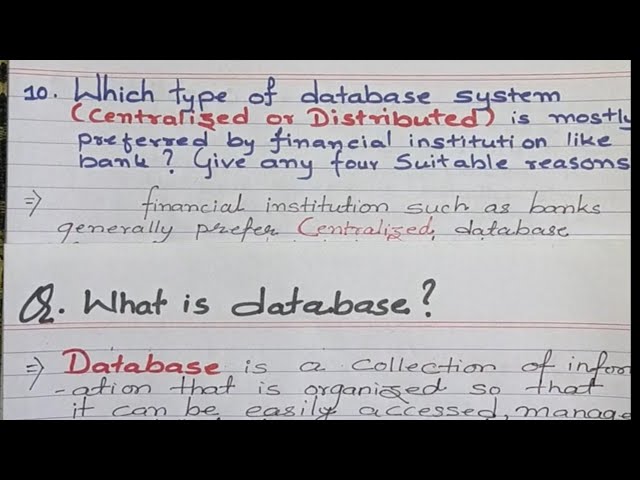 10. Which type of database system
(Centralized or Distributed) is mostly
preferred by financial institution like
bank? Give any four Suitable reasons
⇒ financial institution such as banks
generally prefer Centralized, database
Q. What is database?
⇒ Database is a collection of infor
-ation that is organized so that
it can be easily accessed, manage